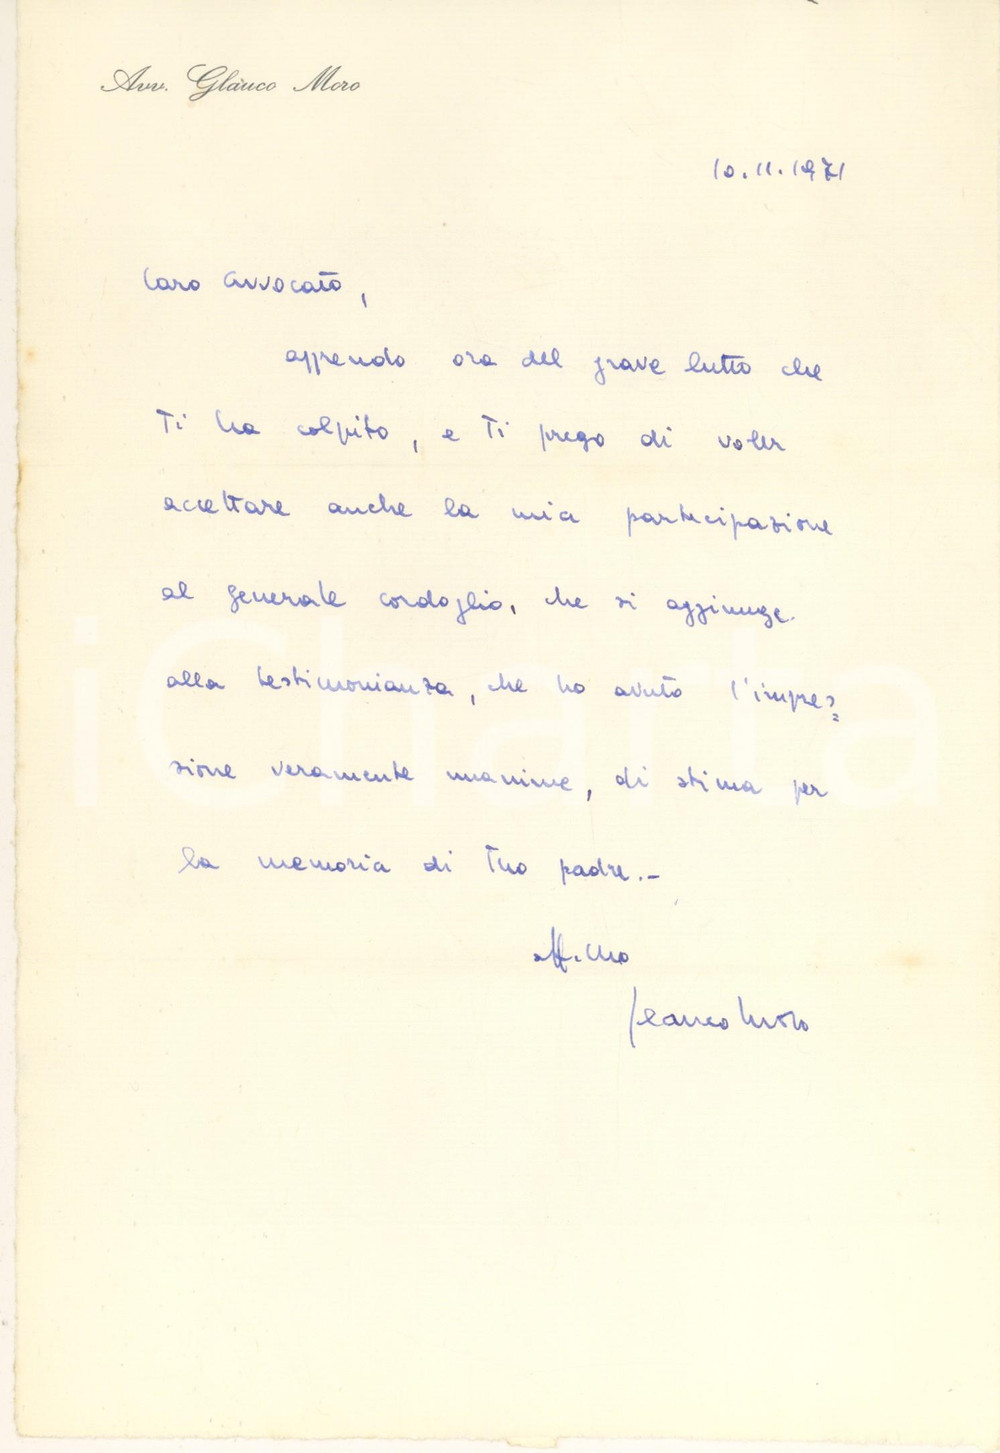 Avv. Glauco Moro
10.11.1971
Caro Avvocato,
apprendo ora del grave lutto che
Ti ha colpito, e Ti prego di voler
accettare anche la mia partecipazione
al generale cordoglio, che si aggiunge
alla testimonianza, che ho avuto l'impres=
sione veramente unanime, di stima per
la memoria di Tuo padre.-
aff.mo
Glauco Moro
iCharta